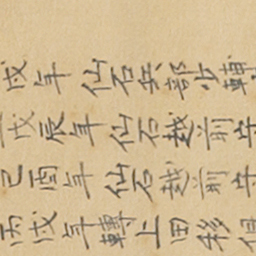 戌年仙石兵部少輔
戊辰年仙石越前守
己酉年仙石越前守
丙戌年轉上田移但